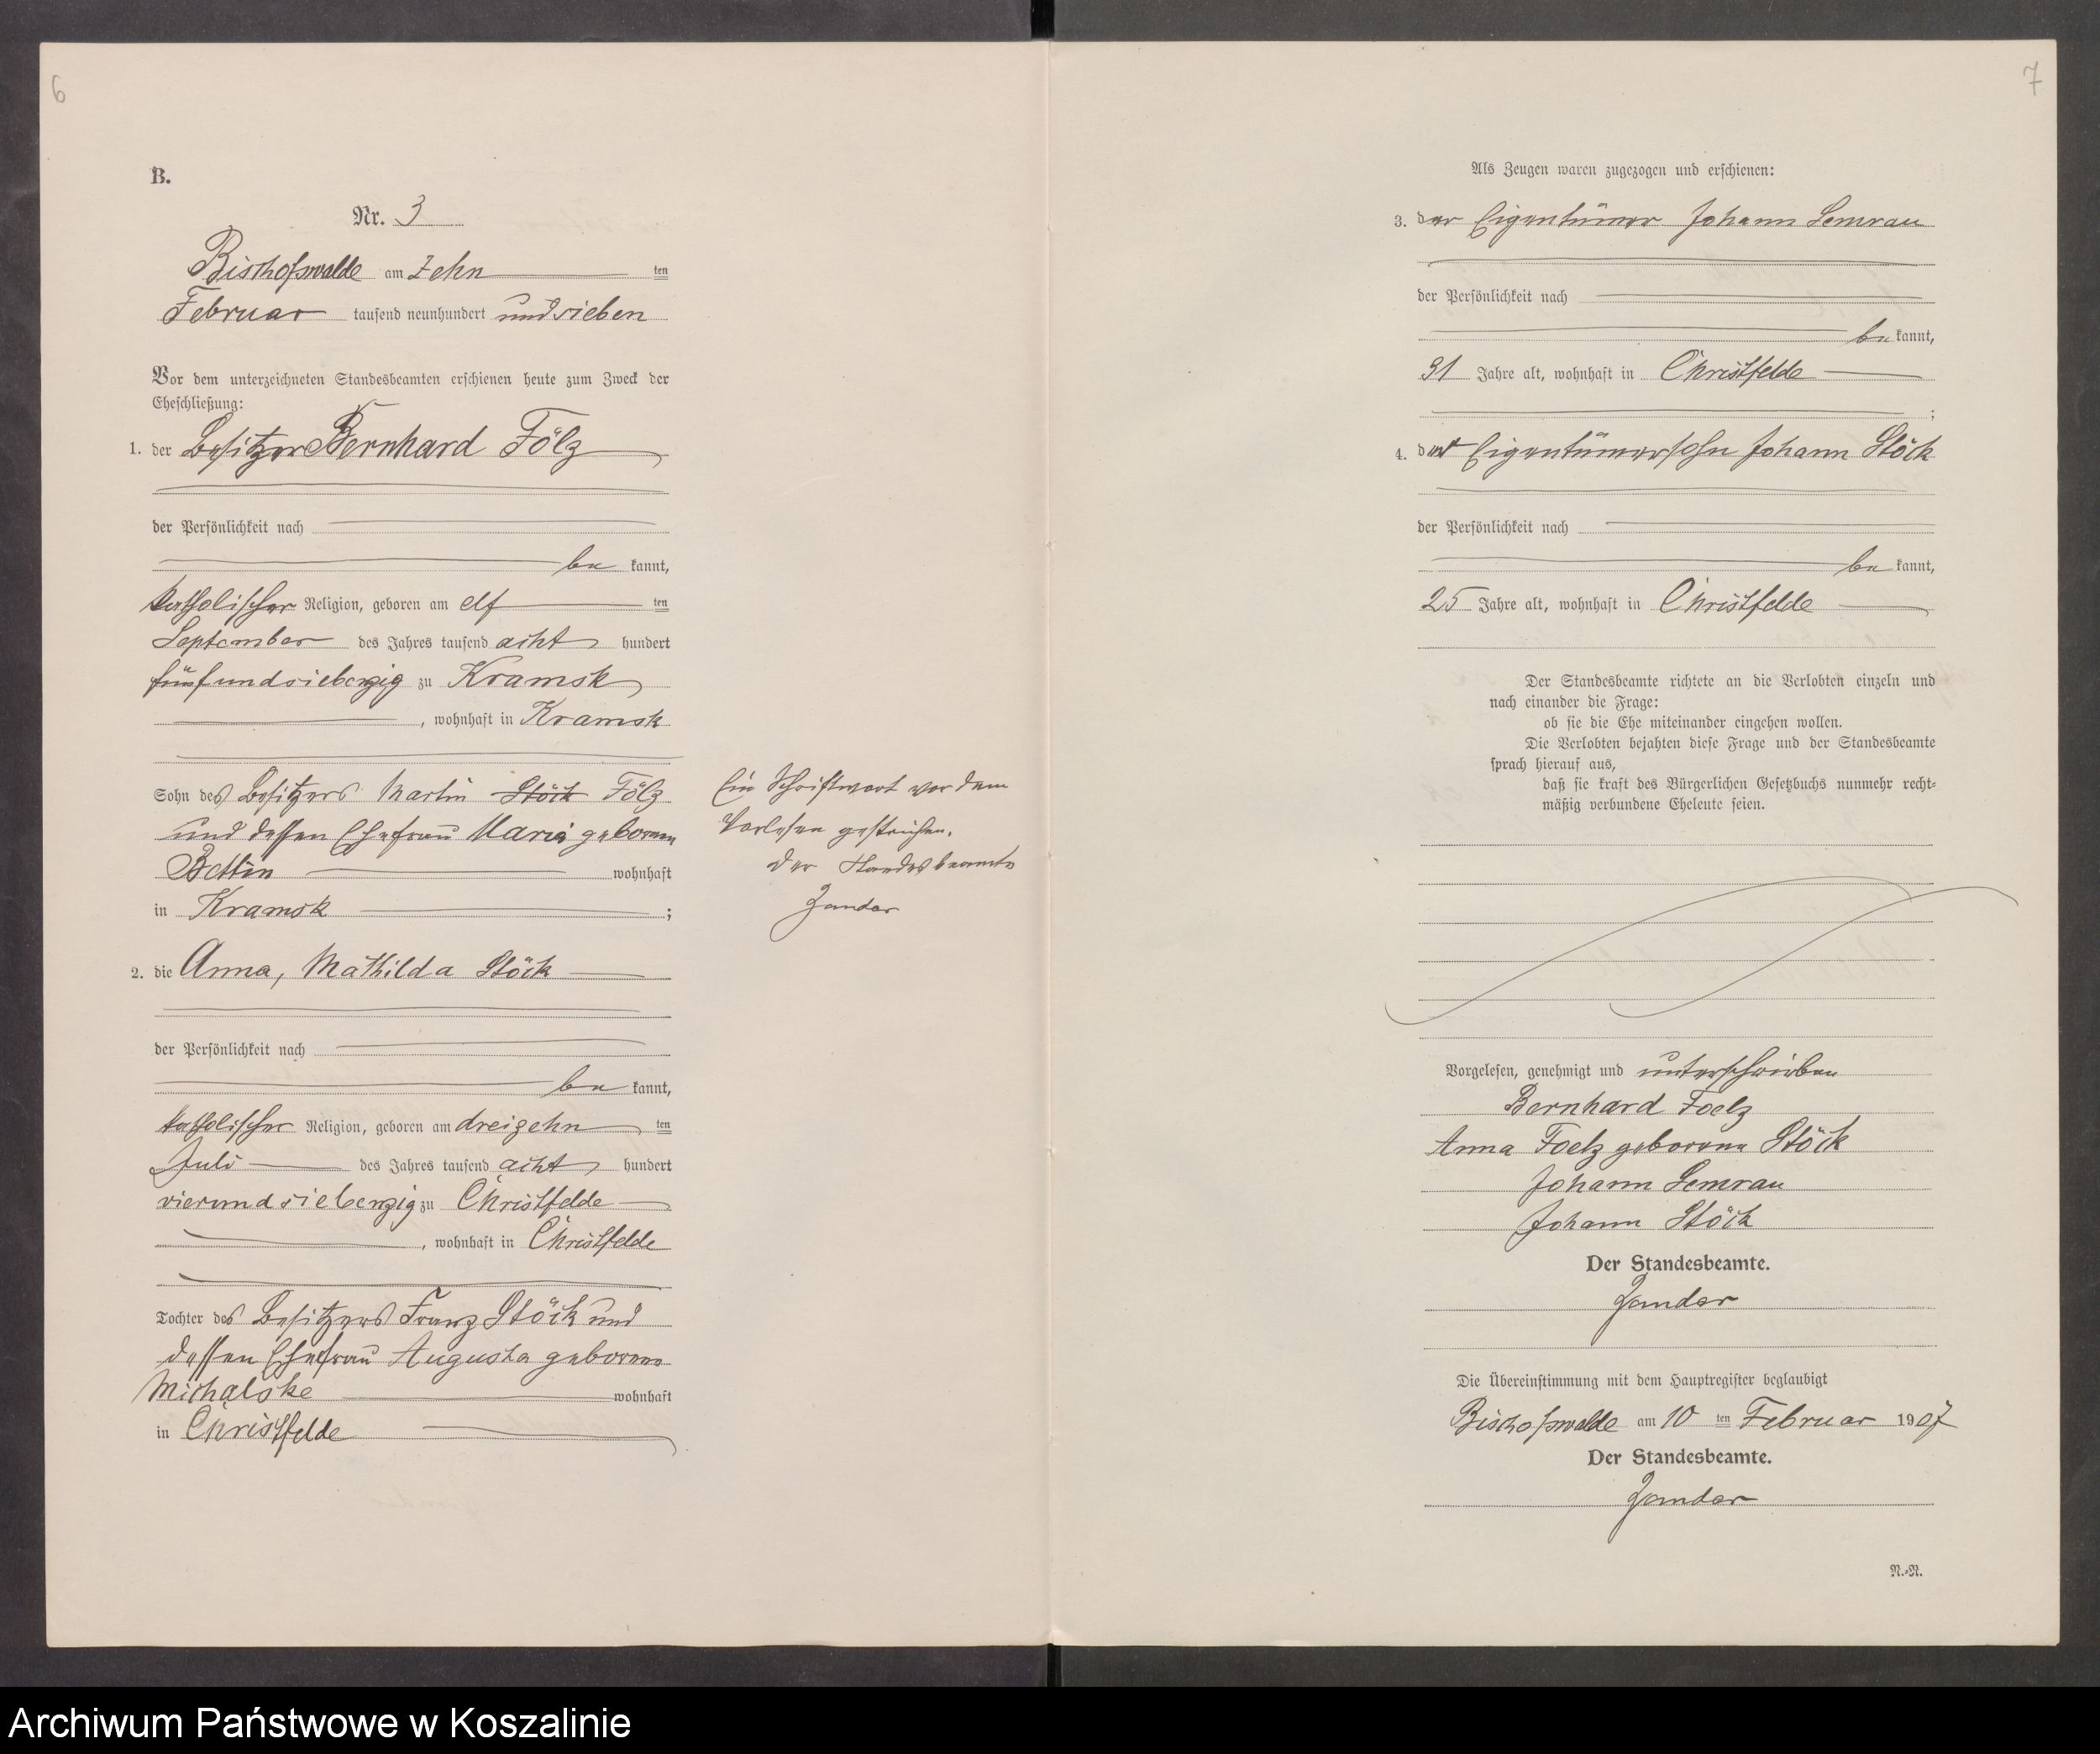 6
B.
Nr. 3
Bischofswalde am zehn ten
Februar tausend neunhundert und sieben
Vor dem unterzeichneten Standesbeamten erschienen heute zum Zweck der
Eheschließung:
1. der Besitzer Bernhard Fölz
der Persönlichkeit nach
be kannt,
katholischer Religion, geboren am elf ten
September des Jahres tausend acht hundert
fünfundsiebenzig zu Kramsk
, wohnhaft in Kramsk
Sohn des Besitzers Martin Stöck Fölz
und dessen Ehefrau Maria geborene
Bettin wohnhaft
in Kramsk ;
Ein Schriftwort vor dem
Vorlesen gestrichen.
Der Standesbeamte
Zander
2. die Anna, Mathilda Stöck
der Persönlichkeit nach
be kannt,
katholischer Religion, geboren am dreizehn ten
Juli des Jahres tausend acht hundert
vierundsiebenzig zu Christfelde
, wohnhaft in Christfelde
Tochter des Besitzers Franz Stöck und
dessen Ehefrau Augusta geborene
Michalske wohnhaft
in Christfelde
7
Als Zeugen waren zugezogen und erschienen:
3. der Eigentümer Johann Semrau
der Persönlichkeit nach
be kannt,
31 Jahre alt, wohnhaft in Christfelde
;
4. der Eigentümersohn Johann Stöck
der Persönlichkeit nach
be kannt,
25 Jahre alt, wohnhaft in Christfelde
Der Standesbeamte richtete an die Verlobten einzeln und
nach einander die Frage:
ob sie die Ehe miteinander eingehen wollen.
Die Verlobten bejahten diese Frage und der Standesbeamte
sprach hierauf aus,
daß sie kraft des Bürgerlichen Gesetzbuchs nunmehr recht-
mäßig verbundene Eheleute seien.
Vorgelesen, genehmigt und unterschrieben
Bernhard Foelz
Anna Foelz geborene Stöck
Johann Semrau
Johann Stöck
Der Standesbeamte.
Zander
Die Übereinstimmung mit dem Hauptregister beglaubigt
Bischofswalde am 10 ten Februar 1907
Der Standesbeamte.
Zander
N.-N.
Archiwum Państwowe w Koszalinie